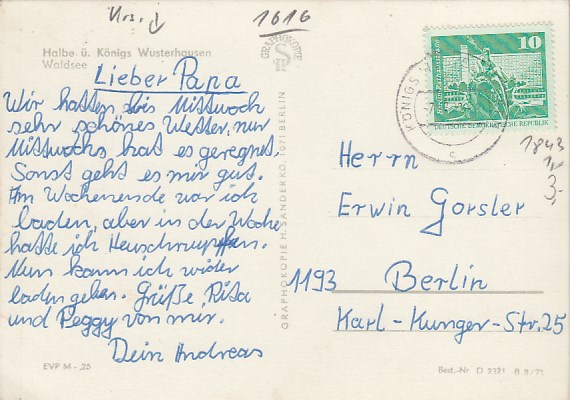 Urs.
1616
Halbe ü. Königs Wusterhausen
Waldsee
Lieber Papa
Wir hatten bis Mittwoch
sehr schönes Wetter, nur
Mittwochs hat es geregnet.
Sonst geht es mir gut.
Am Wochenende war ich
baden, aber in der Woche
hatte ich Heuschnupfen.
Nun kann ich wider
baden gehen. Grüße, Rita
und Peggy von mir.
Dein Andreas
EVP M -,25
GRAPHOKOPIE
GRAPHOKOPIE H. SANDER KG, 1071 BERLIN
KÖNIGS W
c
10
DEUTSCHE DEMOKRATISCHE REPUBLIK
1843
3,-
Herrn
Erwin Gorsler
1193 Berlin
Karl-Kunger-Str. 25
Best.-Nr. D 2321 B 8/73